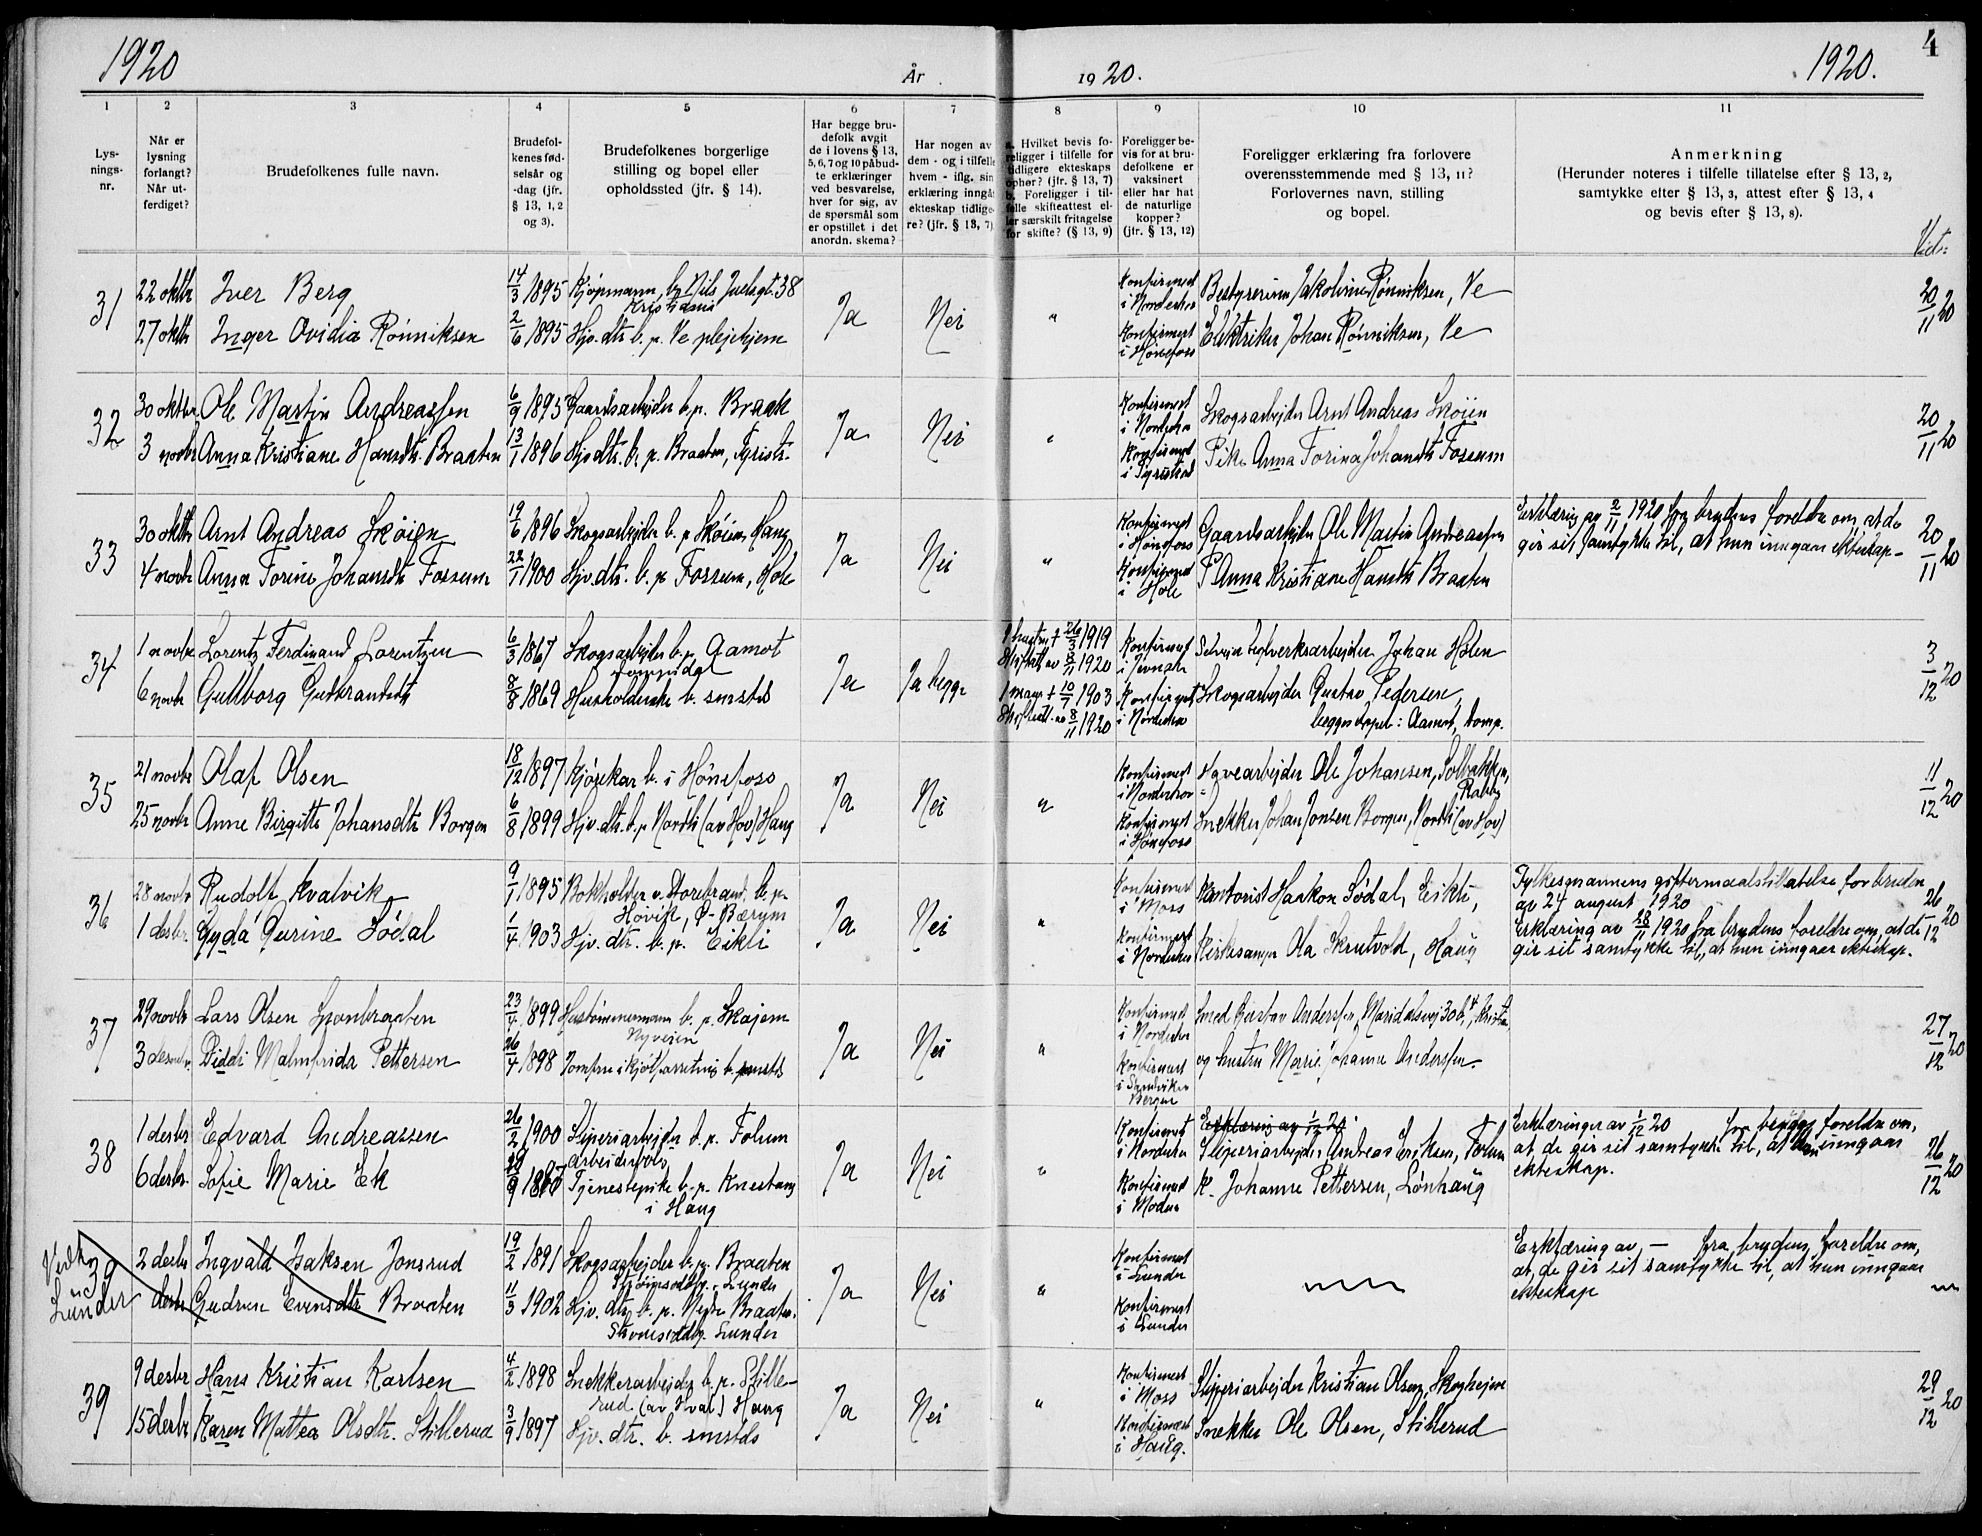 1920
År
19 20.
1920.
4
1
2
3
4
5
6
7
8
9
10
11
Lys-
nings-
nr.
Når er
lysning
forlangt?
Når ut-
ferdiget?
Brudefolkenes fulle navn.
Brudefol-
kenes fød-
selsår og
-dag (jfr.
§ 13, 1, 2
og 3).
Brudefolkenes borgerlige
stilling og bopel eller
opholdssted (jfr. § 14).
Har begge bru-
defolk avgit
de i lovens § 13,
5, 6, 7 og 10 påbud-
te erklæringer
ved besvarelse,
hver for sig, av
de spørsmål som
er opstillet i det
anordn. skema?
Har nogen av
dem - og i tilfelle
hvem - iflg. sin
erklæring inngåt
ekteskap tidlige-
re? (jfr. § 13, 7)
a. Hvilket bevis fo-
religger i tilfelle for
tidligere ekteskaps
ophør? (jfr. § 13, 7)
b. Foreligger i til-
felle skifteattest el-
ler særskilt fritagelse
for skifte? (§ 13, 9)
Foreligger be-
vis for at bru-
defolkene er
vaksinert
eller har hat
de naturlige
kopper?
(jfr. § 13, 12)
Foreligger erklæring fra forlovere
overensstemmende med § 13, 11?
Forlovernes navn, stilling
og bopel.
Anmerkning
(Herunder noteres i tilfelle tillatelse efter § 13, 2,
samtykke efter § 13, 3, attest efter § 13, 4
og bevis efter § 13, 8).
31
22 oktbr Iver Berg 14/3 1895 Kjøpmann, b. Nils Juelsgt. 38
Kristiania
27 oktbr Inger Ovidia Rønniksen 2/6 1895 Hjv. dtr. b. p. Ve plejehjem
Ja Nei "
Konfirmert
i Norderhov
Konfirmert
i Hønefoss
Bestyrerinne Jakobine Rønniksen, Ve
Elektriker Johan Rønniksen, Ve
20/11 20
32
30 oktbr Ole Martin Andreassen 6/9 1895 Gaardsarbejder b. p. Braak
3 novbr Anna Kristiane Hansdtr. Braaten 13/1 1896 Hjv. dtr. b. p. Braaten, Tyristr.
Ja Nei "
Konfirmert
i Norderhov
Konfirmert
i Tyristrand
Skogsarbejder Arnt Andreas Skøien
Pike Anna Torina Johansdtr Fossum
20/11 20
33
30 oktbr Arnt Andreas Skøien 19/6 1896 Skogsarbejder b. p. Skøien, Haug
4 novbr Anna Torine Johansdtr Fossum 22/1 1900 Hjv. dtr. b. p. Fossum, Hole
Ja Nei "
Konfirmert
i Hønefoss
Konfirmert
i Hole
Gaardsarbejder Ole Martin Andreassen
P. Anna Kristiane Hansdtr Braaten
Erklæring av 2/11 1920 fra brudens foreldre om, at de
gir sit samtykke til, at hun inngaar ekteskap -
20/11 20
34
1 novbr Lorentz Ferdinand Lorentzen 6/3 1867 Skogsarbejder b. p. Aamot
6 novbr Gullborg Gulbrandsdtr 8/8 1869 Husholderske b. smstds
Ja Ja begge
1 hustru † 26/3 1919
Skifteatt. av 8/11 1920
1 mann † 10/7 1903
Skifteatt. av 8/11 1920
Konfirmert
i Jevnaker
Konfirmert
i Norderhov
Johan Holen
Skogsarbejder Gustav Pedersen,
begges bopel: Aamot, Somd.
3/12 20
35
21 novbr Olaf Olsen 18/12 1897 Kjørekar b. i Hønefoss
25 novbr Anne Birgitte Johansdtr Borgen 6/8 1899 Hjv. dtr. b. p. Nordli (av Hov) Haug
Ja Nei "
Konfirmert
i Norderhov
Konfirmert
i Hønefoss
Havearbejder Ole Johansen, Solbakken,
Snekker Johan Jonsen Borgen, Nordli (av Hov)
11/12 20
36
28 novbr Rudolf Kvalvik 9/1 1895 Bokholder v. b. p.
Høvik, Ø-Bærum
1 desbr. Gyda Gurine Sødal 1/4 1903 Hjv. dtr. b. p. Eikli
Ja Nei "
Konfirmert
i Moss
Konfirmert
i Norderhov
Kontorist Haakon Sødal, Eikli,
Kirkesanger Ola Skrutvold, Haug
Fylkesmannens giftermaalstillatelse for bruden
av 24 august 1920
Erklæring av 28/11 1920 fra brudens foreldre om, at de
gir sit samtykke til, at hun inngaar ekteskap.
26/12 20
37
29 novbr Lars Olsen 23/4 1899 Hustømmermann b. p. Skajem
Nyveien
3 desbr. Diddi Malmfrida Pettersen 26/4 1898 b. smstds
Ja Nei "
Konfirmert
i Norderhov
Konfirmert
i Sandviken
Bergen
Smed Gustav Anderssen, Maridalsvej 30 b, Kristia
og hustru Marie Johanne Anderssen.
27/12 20
38
1 desbr Edvard Andreassen 26/2 1900 Sliperiarbejder b. p. Follum
arbeiderbol.
6 desbr. Sofie Marie Ek Tjenestepike b. p. Knestang
i Haug
Ja Nei "
Konfirmert
i Norderhov
Konfirmert
i Modum
Erklæring av 1/12 20.
Sliperiarbejder Andreas Eriksen, Follum
K. Johanne Pettersen, Lønhaug
Erklæringer av 1/12 20 fra begges foreldre om,
at, de gir sit samtykke til, at inngaar
ekteskap.
26/12 20
Lunder
39
2 desbr Ingvald Isaksen Jonsrud 19/2 1891 Skogsarbejder b. p. Braaten
Strømsoddby. Lunder
desbr Gudrun Evensdtr Braaten 11/3 1902 Hjv. dtr. b. p. Nedre Braaten.
Strømsoddby. Lunder
Ja Nei "
Konfirmert
i Lunder
Konfirmert
i Lunder
Erklæring av — fra brudens foreldre om,
at, de gir sit samtykke til, at hun inngaar
ekteskap
39
9 desbr Hans Kristian Karlsen 4/2 1898 Snekkerarbejder b. p. Stille-
rud (av Hval) Haug
15 desbr Karen Mattea Olsdtr. Stillerud 3/9 1897 Hjv. dtr. b. smstds
Ja Nei "
Konfirmert
i Moss
Konfirmert
i Haug.
Sliperiarbejder Kristian Olsen, Skoghejem
Snekker Ole Olsen, Stillerud
29/12 20